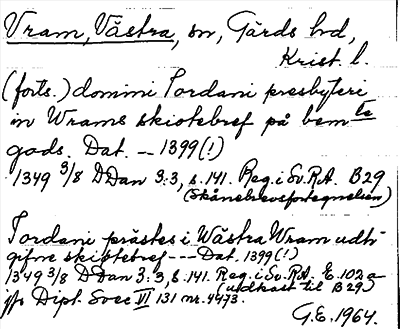 Vram, Västra, sn, Gärds hd,
Krist. l.
(forts.) domini Iordani presbyteri
in Wrams skiötebref på bem te
gods. Dat. -- 1399 (!)
1349 3/8 DDan 3:3, s. 141. Reg. i Sv.R.A. B29
(Skånebrevsförtegnelsen)
Iordani prästes i Wästra Wram udti
gifne skiötebref --- Dat. 1399 (!)
1349 3/8 DDan 3:3, s. 141. Reg. i Sv.R.A. E.102a
(udkast til B29)
jfr Dipl. Svec VI 131 nr. 4473.
G.E. 1964.